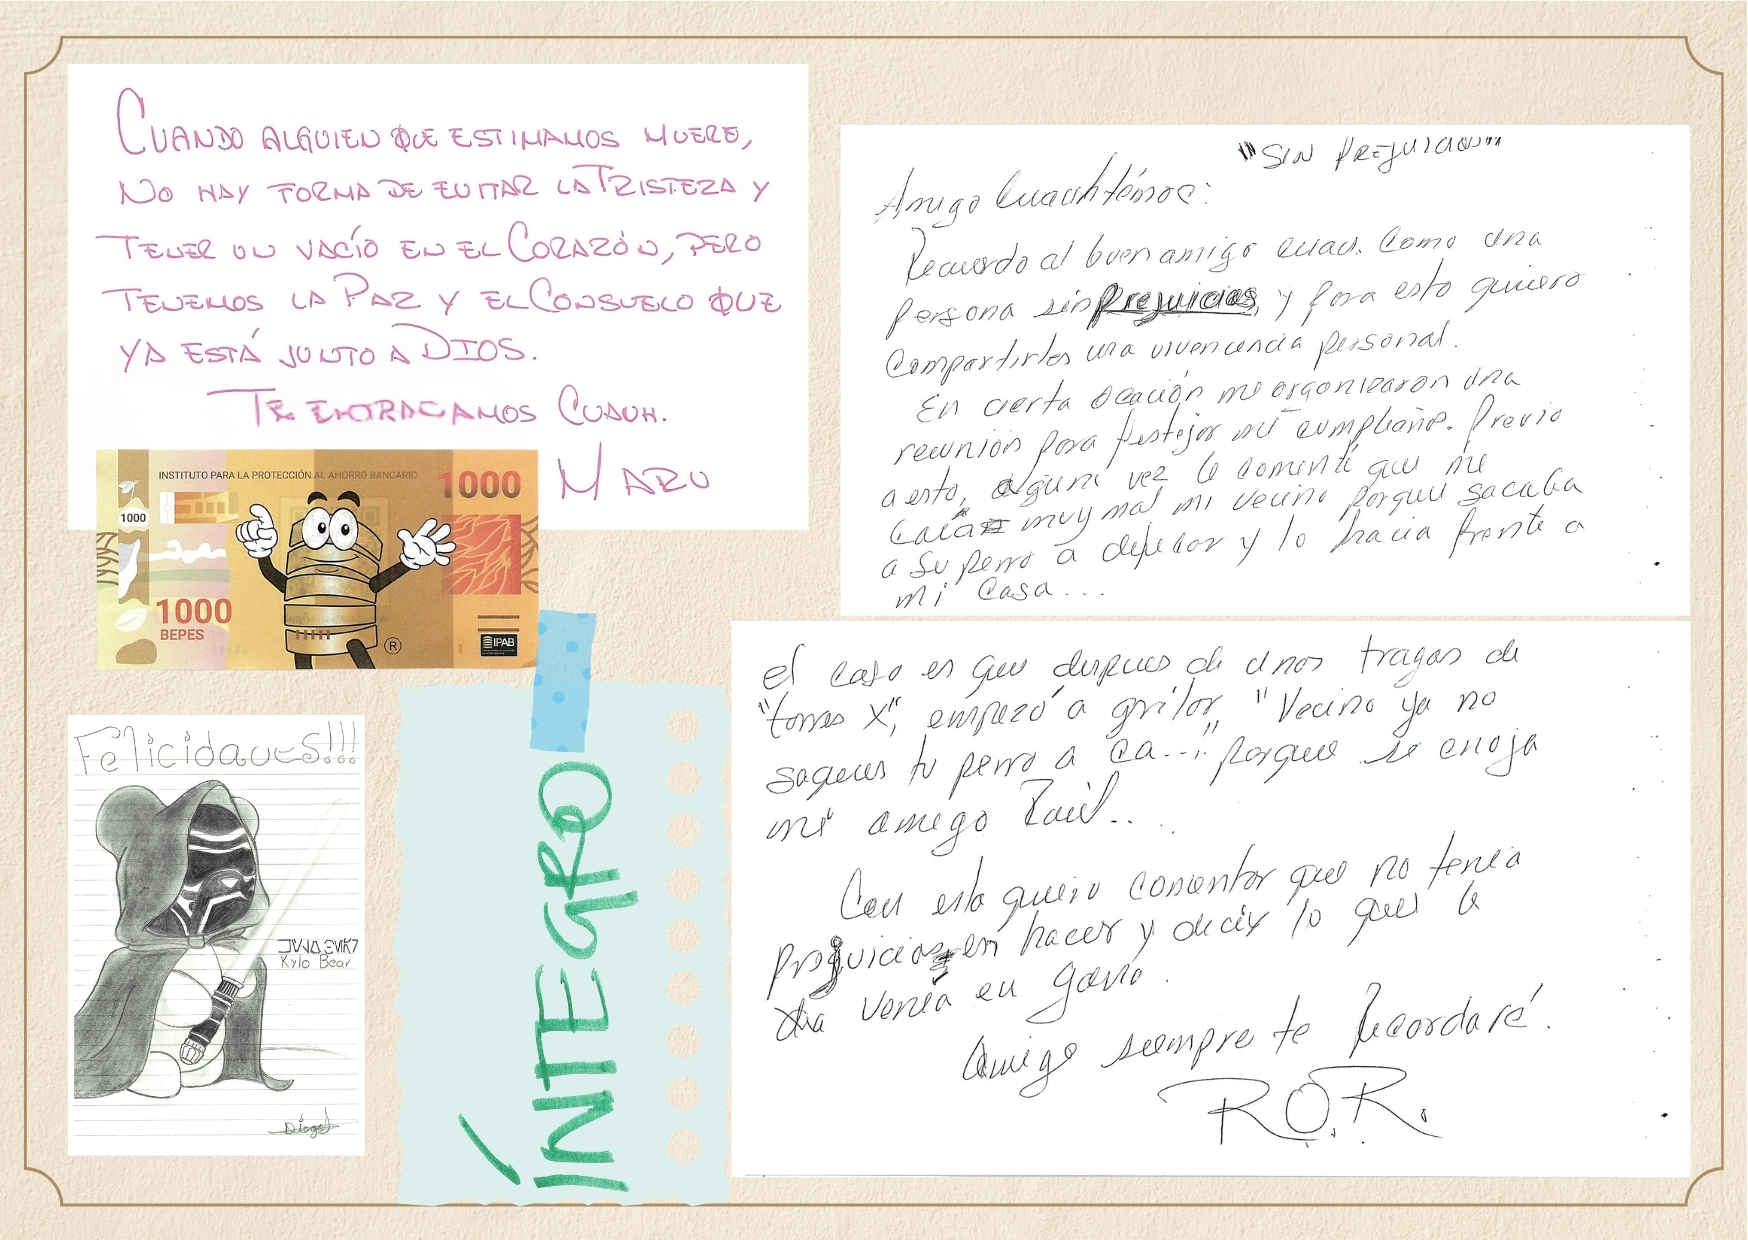 CUANDO ALGUIEN QUE ESTIMAMOS MUERE,
NO HAY FORMA DE EVITAR LA TRISTEZA Y
TENER UN VACÍO EN EL CORAZÓN, PERO
TENEMOS LA PAZ Y EL CONSUELO QUE
YA ESTÁ JUNTO A DIOS.
TE EXTRAÑAMOS CUAUH.
MARU
INSTITUTO PARA LA PROTECCIÓN AL AHORRO BANCARIO
1000
1000
1000
BEPES
®
IPAB
Felicidades!!!
Kylo Bear
Diego
ÍNTEGRO
"SIN PREJUICIOS"
Amigo Cuauhtémoc:
Recuerdo al buen amigo cuau. Como una
persona sin prejuicios, y para esto quiero
compartirles una vivencia personal.
En cierta ocación me organizaron una
reunión para festejar mi cumpleaño. Previo
a esto, alguna vez le comenté que me
caía muy mal mi vecino porque sacaba
a su perro a defecar y lo hacia frente a
mi casa...
el caso es que despues de unos tragos de
"torres X", empezó a gritar, "Vecino ya no
saques tu perro a ca..." porque se enoja
mi amigo Raúl...
Con esto quiero comentar que no tenia
prejuicios en hacer y decir lo que le
venía en gana.
Amigo siempre te Recordaré.
R.O.R.